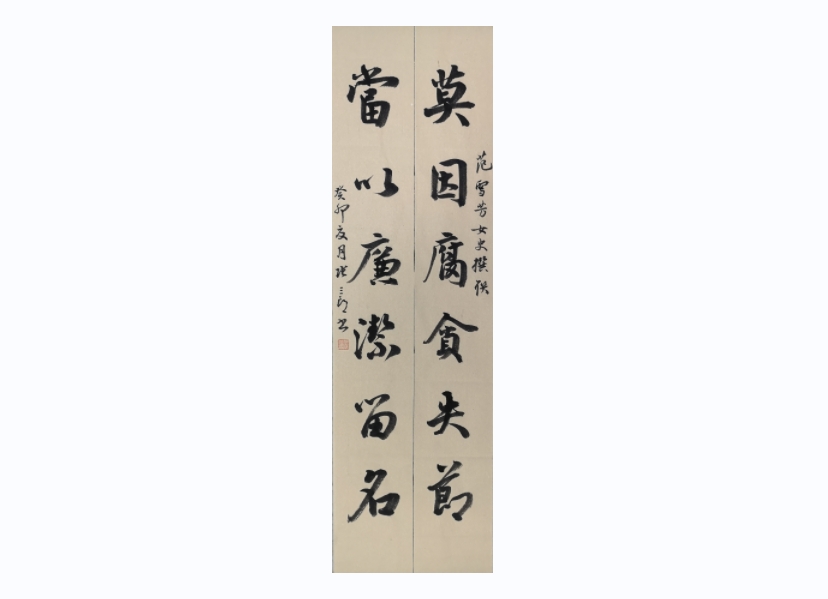 范雪芳女史撰联
莫因腐貪失節
當以廉潔留名
癸卯夏月張三郎书